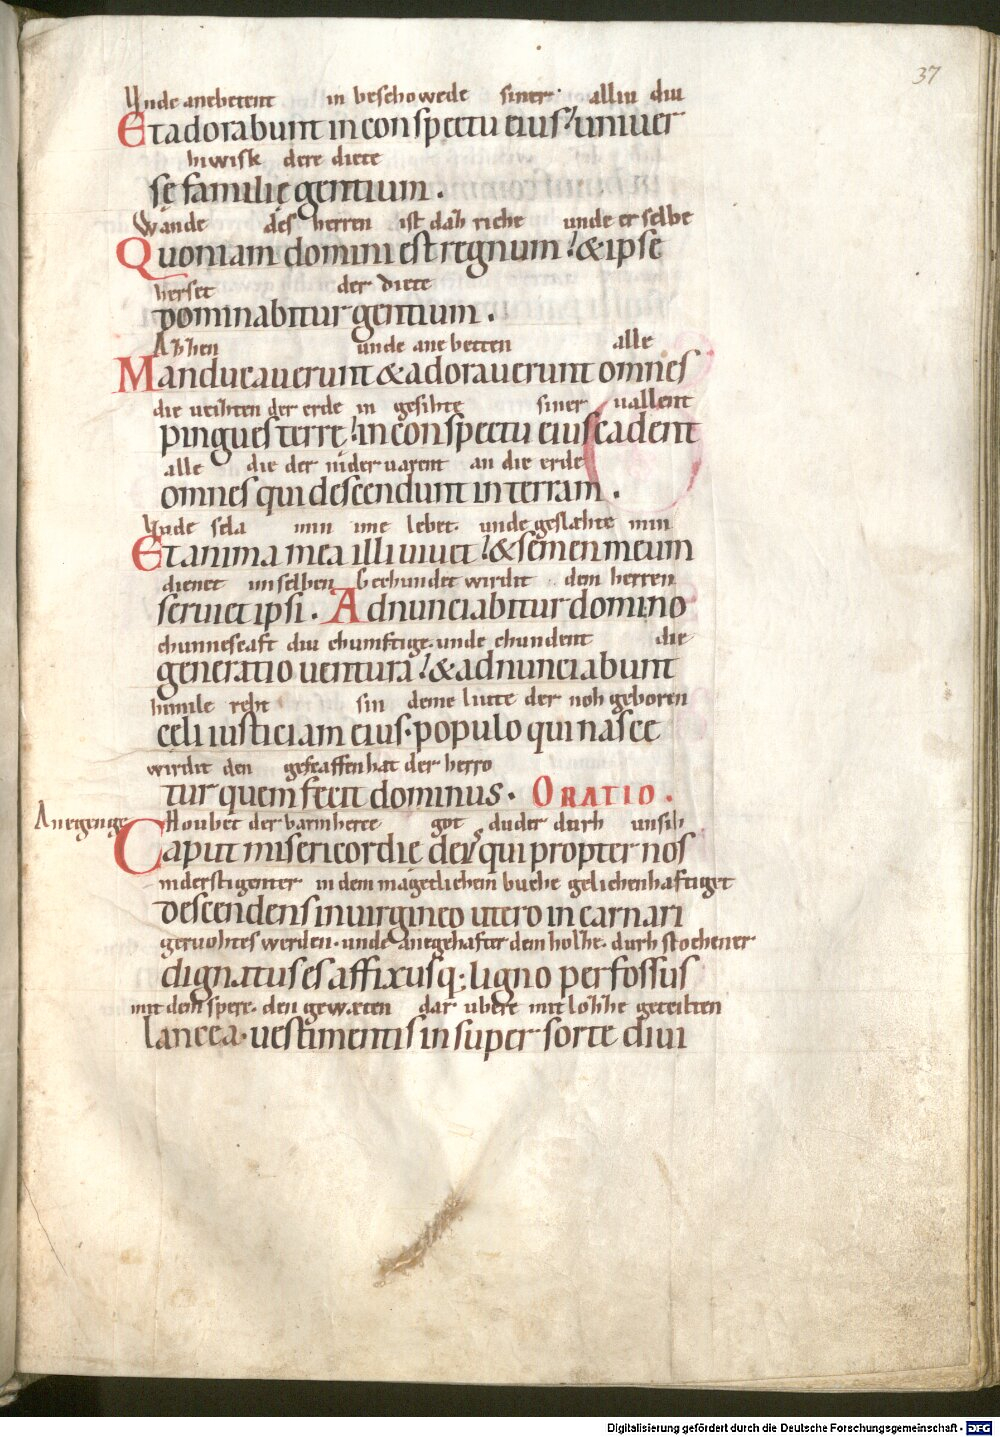 37
Unde anebetent in beschowede siner alliu diu
Et adorabunt in conspectu eius uniuer
hiwisk dere diete
sę familię gentium.
Wande des herren ist dah riche unde er selbe
Quoniam domini est regnum & ipse
herset der diete
dominabitur gentium.
unde ane betten alle
Manducauerunt & adorauerunt omnes
die ueihten der erde in gesihte siner uallent
pingues terrę in conspectu eius cadent
alle die der nider uarent an die erde
omnes qui descendunt in terram.
Unde sela min ime lebet. unde geslæhte min
Et anima mea illi uiuet & semen meum
dienet im selben Gechundet wirdit dem herren
seruiet ipsi. Adnunciabitur domino
chunnescaft diu chumftige. unde chundent die
generatio uentura & adnunciabunt
himile reht sin deme liute der noh geboren
cęli iusticiam eius. populo qui nasce
wirdit den gescaffen hat der herro
tur quem fecit dominus. ORATIO.
Aneigenge Houbet der barmherce got du der durh unsih
Caput misericordię dei qui propter nos
niderstigenter in dem magetlichem buche gelichenhaftiget
descendens in uirgineo utero incarnari
geruohtes werden. unde anegehafter dem holhe. durh stochener
dignatus es affixusq; ligno perfossus
mit dem spere. den gew.eten dar ubere mit lohhe geteilten
lancea. uestimentis insuper sorte diui
Digitalisierung gefördert durch die Deutsche Forschungsgemeinschaft - DFG